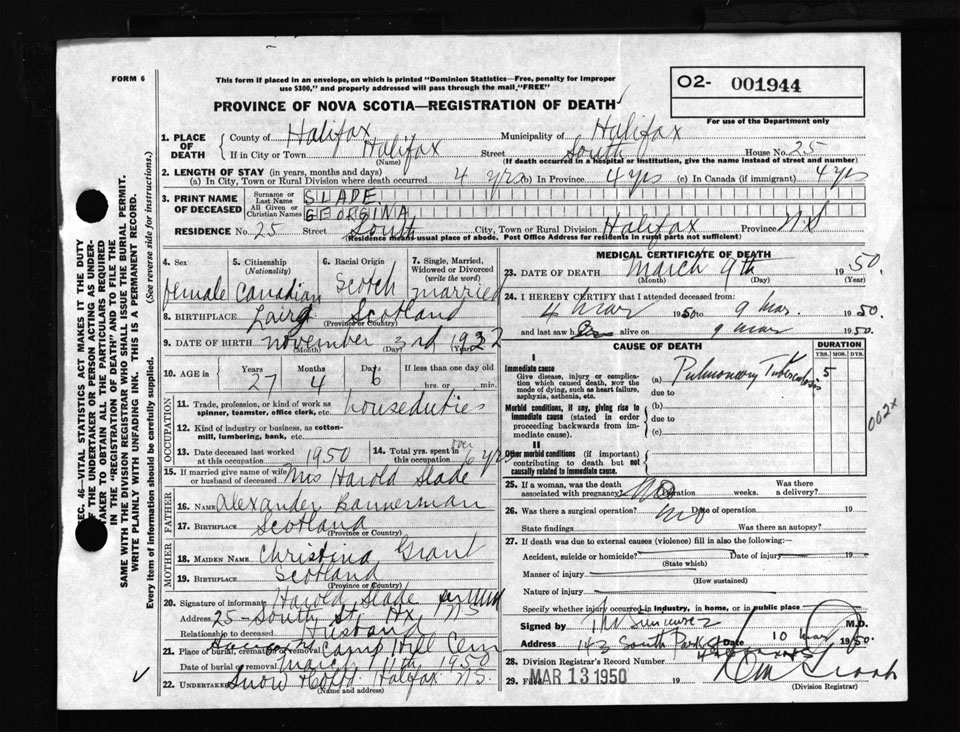 FORM 6
This form if placed in an envelope, on which is printed "Dominion Statistics—Free, penalty for improper
use $300," and properly addressed will pass through the mail, "FREE"
PROVINCE OF NOVA SCOTIA—REGISTRATION OF DEATH
O2- 001944
For use of the Department only
1. PLACE OF DEATH
County of Halifax Municipality of Halifax
If in City or Town Halifax Street South House No. 25
(Name) (If death occurred in a hospital or institution, give the name instead of street and number)
2. LENGTH OF STAY (in years, months and days)
(a) In City, Town or Rural Division where death occurred 4 yrs (b) In Province 4 yrs (c) In Canada (if immigrant) 4 yrs
3. PRINT NAME OF DECEASED
Surname or Last Name SLADE
All Given or Christian Names GEORGINA
RESIDENCE No. 25 Street South City, Town or Rural Division Halifax Province NS
(Residence means usual place of abode. Post Office Address for residents in rural parts not sufficient)
4. Sex female
5. Citizenship (Nationality) Canadian
6. Racial Origin Scotch
7. Single, Married, Widowed or Divorced (write the word) married
8. BIRTHPLACE Lairg Scotland
(Province or Country)
9. DATE OF BIRTH November 3rd 1922
(Month) (Day) (Year)
10. AGE in Years 27 Months 4 Days 6 If less than one day old
hrs. or min.
OCCUPATION
11. Trade, profession, or kind of work as spinner, teamster, office clerk, etc. houseduties
12. Kind of industry or business, as cotton-mill, lumbering, bank, etc.
13. Date deceased last worked at this occupation 1950
14. Total yrs. spent in this occupation over 6 yrs
15. If married give name of wife or husband of deceased Mrs Harold Slade
FATHER
16. NAME Alexander Bannerman
17. BIRTHPLACE Scotland
(Province or Country)
MOTHER
18. MAIDEN NAME Christina Grant
19. BIRTHPLACE Scotland
(Province or Country)
20. Signature of informant Harold Slade
Address 25 - South St. Hx, NS
Relationship to deceased Husband
21. Place of burial, cremation or removal Camp Hill Cem
Date of burial or removal March 11th 1950
22. Undertaker Snow & Co Ltd. Halifax NS.
(Name and address)
MEDICAL CERTIFICATE OF DEATH
23. DATE OF DEATH March 9th 1950.
(Month) (Day) (Year)
24. I HEREBY CERTIFY that I attended deceased from:
4 Mar 1950 to 9 Mar. 1950.
and last saw her alive on 9 Mar 1950.
CAUSE OF DEATH
DURATION
YRS. MOS. DYS.
I
Immediate cause
Give disease, injury or complication which caused death, NOT the mode of dying, such as heart failure, asphyxia, asthenia, etc.
(a) Pulmonary Tuberculosis 5
due to
Morbid conditions, if any, giving rise to immediate cause (stated in order proceeding backwards from immediate cause).
(b)
due to
(c)
002X
II
Other morbid conditions (if important) contributing to death but not causally related to immediate cause.
25. If a woman, was the death associated with pregnancy? No Duration weeks. Was there a delivery?
26. Was there a surgical operation? no Date of operation 19
State findings Was there an autopsy?
27. If death was due to external causes (violence) fill in also the following:
Accident, suicide or homicide? Date of injury 19
(State which)
Manner of injury
(How sustained)
Nature of injury
Specify whether injury occurred in industry, in home, or in public place
Signed by M.D.
Address 143 South Park St Date 10 Mar 1950.
28. Division Registrar's Record Number
29. Filed MAR 13 1950 19
(Division Registrar)
SEC. 46—VITAL STATISTICS ACT MAKES IT THE DUTY
OF THE UNDERTAKER OR PERSON ACTING AS UNDER-
TAKER TO OBTAIN ALL THE PARTICULARS REQUIRED
IN THE "REGISTRATION OF DEATH" AND TO FILE THE
SAME WITH THE DIVISION REGISTRAR WHO SHALL ISSUE THE BURIAL PERMIT.
WRITE PLAINLY WITH UNFADING INK. THIS IS A PERMANENT RECORD.
Every item of information should be carefully supplied. (See reverse side for instructions.)